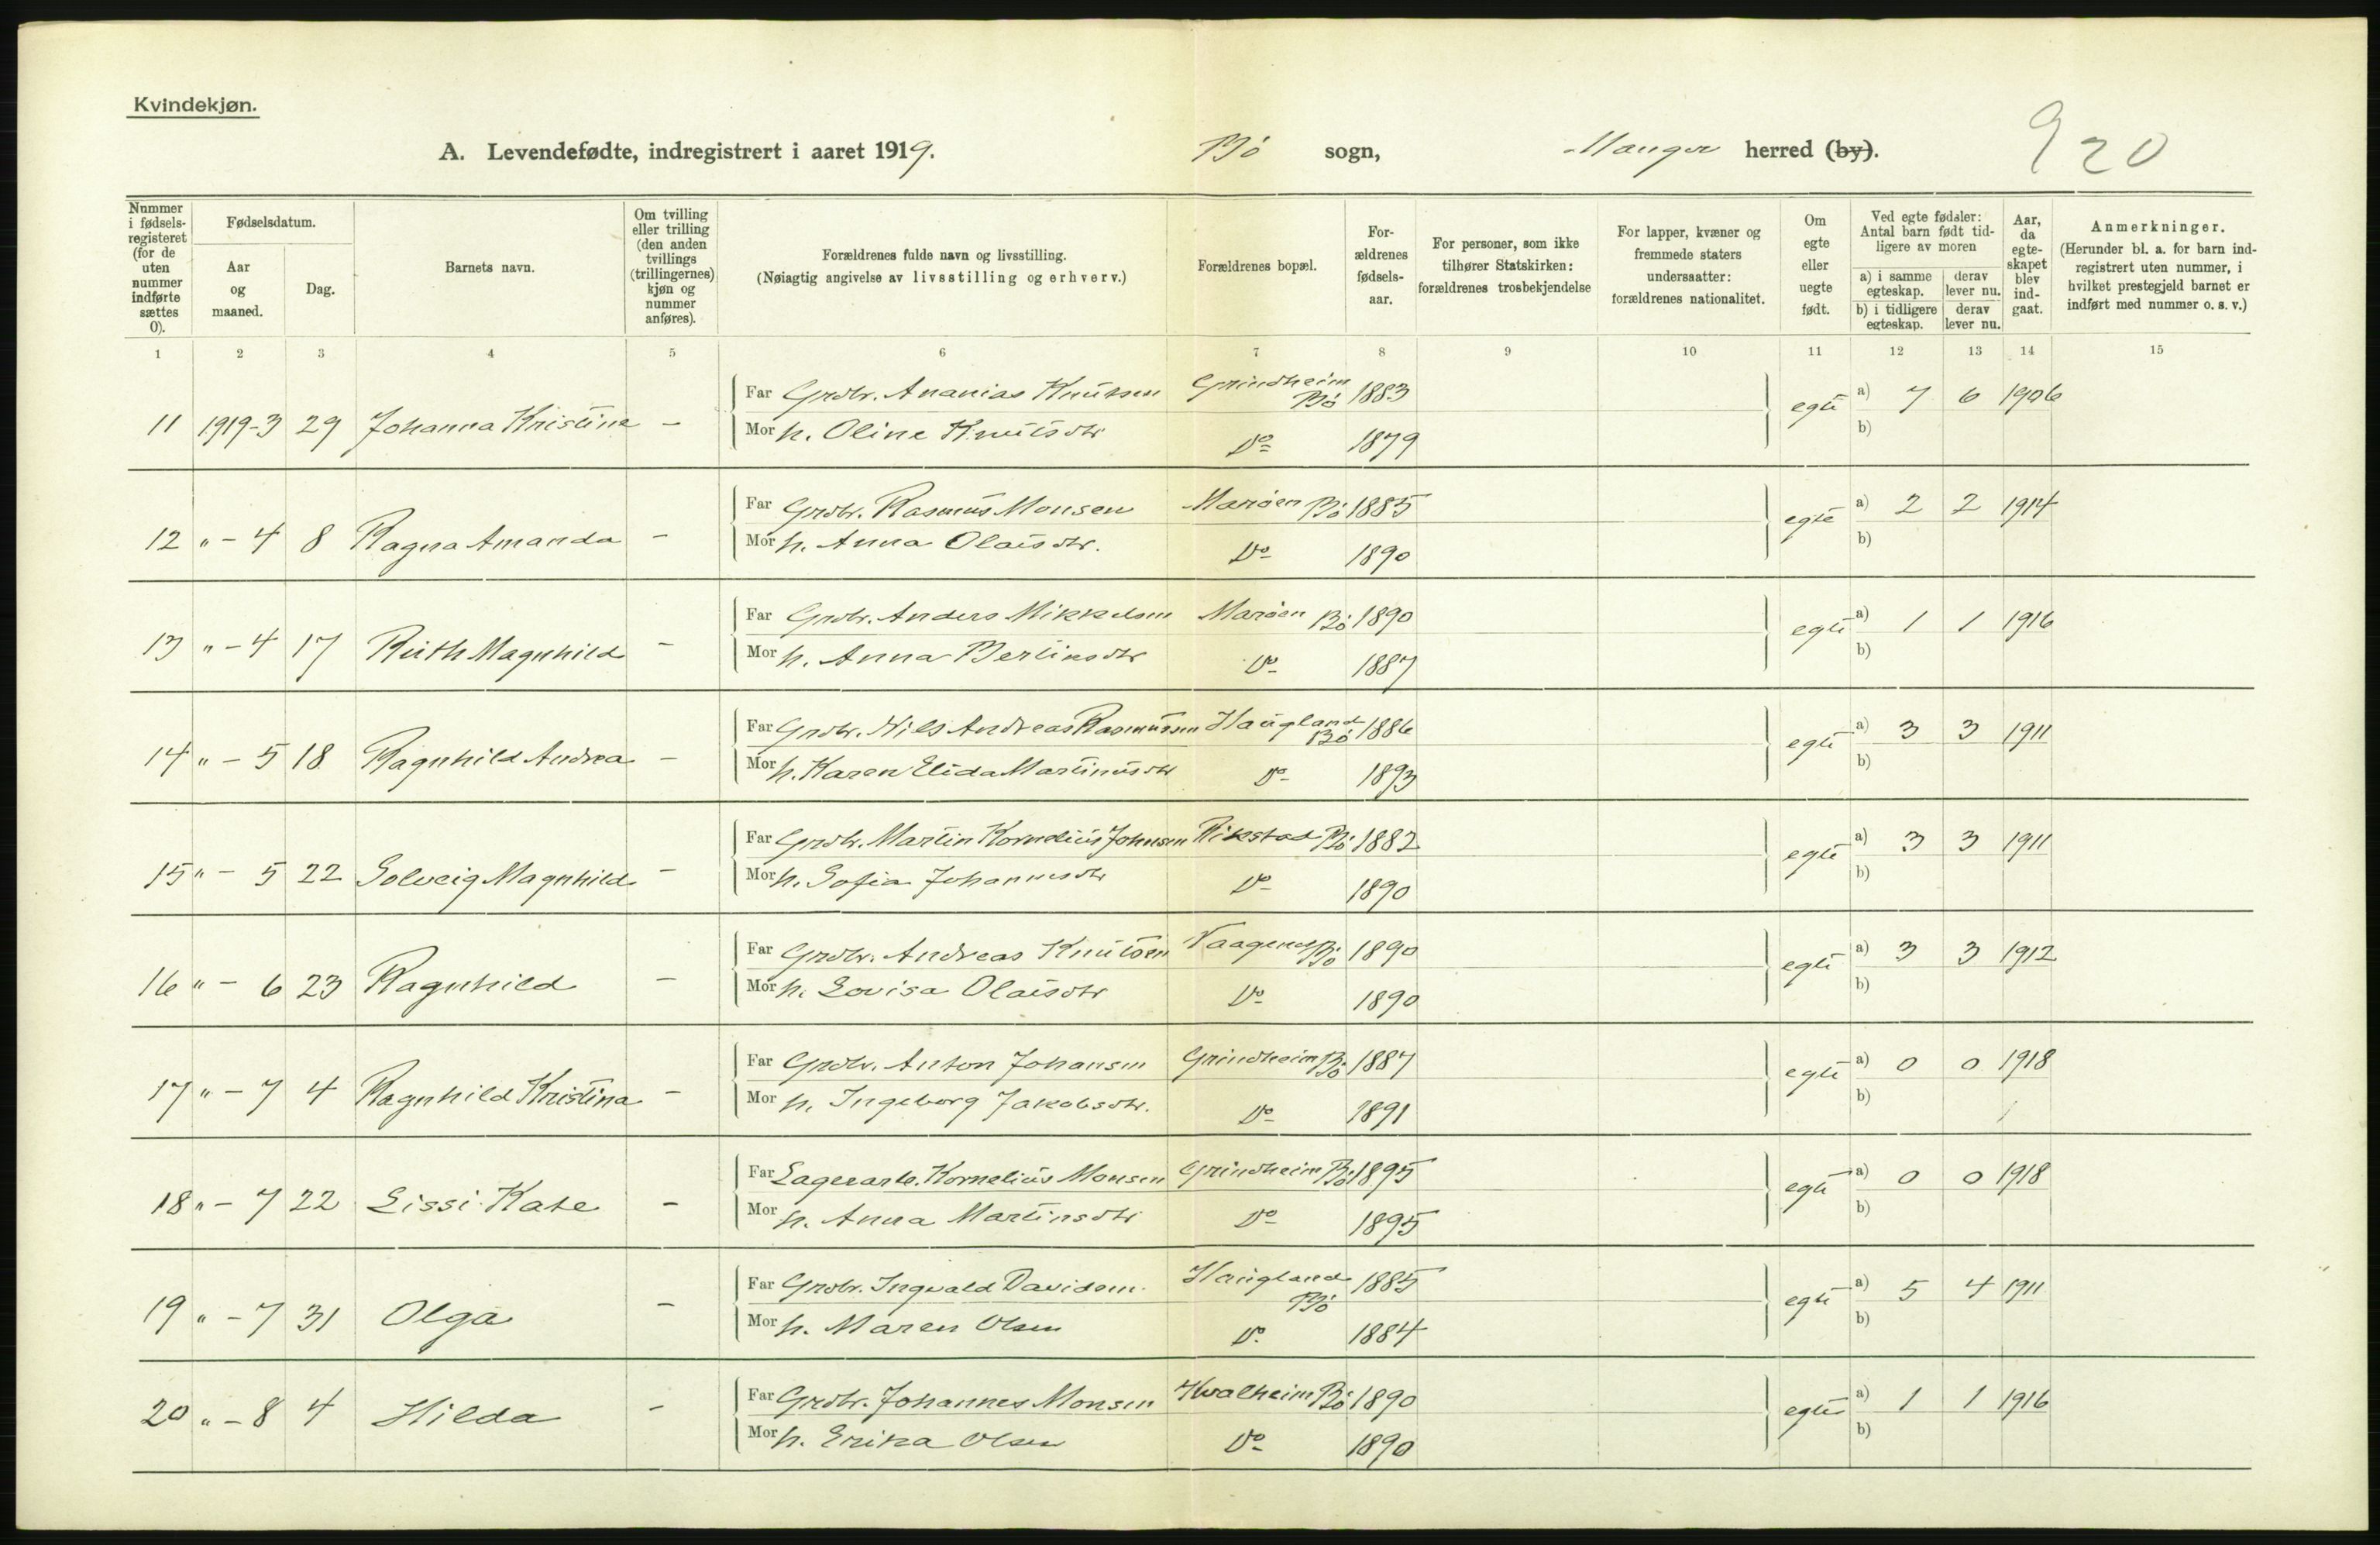 Kvindekjøn.
A. Levendefødte, indregistrert i aaret 1919. Bø sogn, Manger herred (by). 920
Nummer i fødsels-registeret (for de uten nummer indførte sættes 0). Fødselsdatum. Aar og maaned. Dag. Barnets navn. Om tvilling eller trilling (den anden tvillings (trillingernes) kjøn og nummer anføres). Forældrenes fulde navn og livsstilling. (Nøiagtig angivelse av livsstilling og erhverv.) Forældrenes bopæl. For-ældrenes fødsels-aar. For personer, som ikke tilhører Statskirken: forældrenes trosbekjendelse For lapper, kvæner og fremmede staters undersaatter: forældrenes nationalitet. Om egte eller uegte født. Ved egte fødsler: Antal barn født tid-ligere av moren a) i samme egteskap. derav lever nu. b) i tidligere egteskap. derav lever nu. Aar, da egte-skapet blev ind-gaat. Anmerkninger. (Herunder bl. a. for barn ind-registrert uten nummer, i hvilket prestegjeld barnet er indført med nummer o. s. v.)
1 2 3 4 5 6 7 8 9 10 11 12 13 14 15
Far Grdbr. Ananias Knutsen Grindheim Bø 1883 a) 7 6 1906
11 1919-3 29 Johanna Kristine - Mor h. Oline Knutsdtr Do 1879 egte b)
Far Grdbr. Rasmus Monsen Marøen Bø 1885 a) 2 2 1914
12 " - 4 8 Ragna Amanda - Mor h. Anna Olaisdtr. Do 1890 egte b)
Far Grdbr. Anders Mikkelsen Marøen Bø 1890 a) 1 1 1916
13 " - 4 17 Ruth Magnhild - Mor h. Anna Bertinsdtr Do 1887 egte b)
Far Grdbr. Nils Andreas Rasmussen Haugland Bø 1886 a) 3 3 1911
14 " - 5 18 Ragnhild Andrea - Mor h. Karen Elida Martinusdtr Do 1893 egte b)
Far Grdbr. Martin Kornelius Johnsen Rikstad Bø 1882 a) 3 3 1911
15 " - 5 22 Solveig Magnhild - Mor h. Sofia Johannesdtr Do 1890 egte b)
Far Grdbr. Andreas Knutsen Vaagenes Bø 1890 a) 3 3 1912
16 " - 6 23 Ragnhild - Mor h. Lovisa Olaisdtr Do 1890 egte b)
Far Grdbr. Anton Johansen Grindheim Bø 1887 a) 0 0 1918
17 " - 7 4 Ragnhild Kristina - Mor h. Ingeborg Jakobsdtr. Do 1891 egte b)
Far Lagerarb. Kornelius Monsen Grindheim Bø 1895 a) 0 0 1918
18 " - 7 22 Lissi Kate - Mor h. Anna Martinsdtr Do 1895 egte b)
Far Grdbr. Ingvald Davidsen. Haugland Bø 1885 a) 5 4 1911
19 " - 7 31 Olga - Mor h. Maren Olsen Do 1884 egte b)
Far Grdbr. Johannes Monsen Hvalheim Bø 1890 a) 1 1 1916
20 " - 8 4 Hilda - Mor h. Erika Olsen Do 1890 egte b)